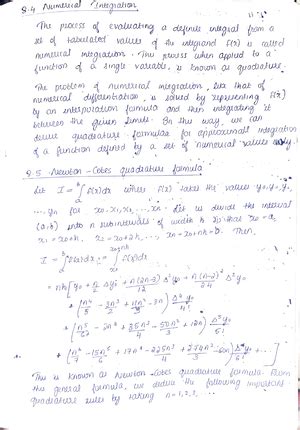 8.4 Numerical Integration
The process of evaluating a definite integral from a
set of tabulated values of the integrand f(x) is called
numerical integration. This process when applied to a
function of a single variable, is known as quadrature.
The problem of numerical integration, like that of
numerical differentiation, is solved by representing f(x)
by an interpolation formula and then integrating it
between the given limits. In this way, we can
derive quadrature formulas for approximate integration
of a function defined by a set of numerical values only.
8.5 Newton-Cotes quadrature formula
Let I = ∫ f(x)dx where f(x) takes the values y₀, y₁, y₂,
... yn for x = x₀, x₁, x₂, ... xn. Let us divide the interval
(a,b) into n subintervals of width h so that x₀ = a,
x₁ = x₀+h, x₂ = x₀+2h, ..., xn = x₀+nh = b. Then,
I = ∫ f(x)dx = ∫ f(x)dx
= nh [y₀ + n/2 Δy₀ + n(2n-3)/12 Δ²y₀ + n(n-2)²/24 Δ³y₀
+ (n⁴/5 - 3n³/2 + 11n²/3 - 3n) Δ⁴y₀/4!
+ (n⁵/6 - 2n⁴ + 35n³/4 - 50n²/3 + 12n) Δ⁵y₀/5!
+ (n⁶/7 - 15n⁵/6 + 17n⁴ - 225n³/4 + 274n²/3 - 60n) Δ⁶y₀/6! + ...]
This is known as Newton-Cotes quadrature formula. From
the general formula, we derive the following important
quadrature rules by taking n = 1,2,3, ...